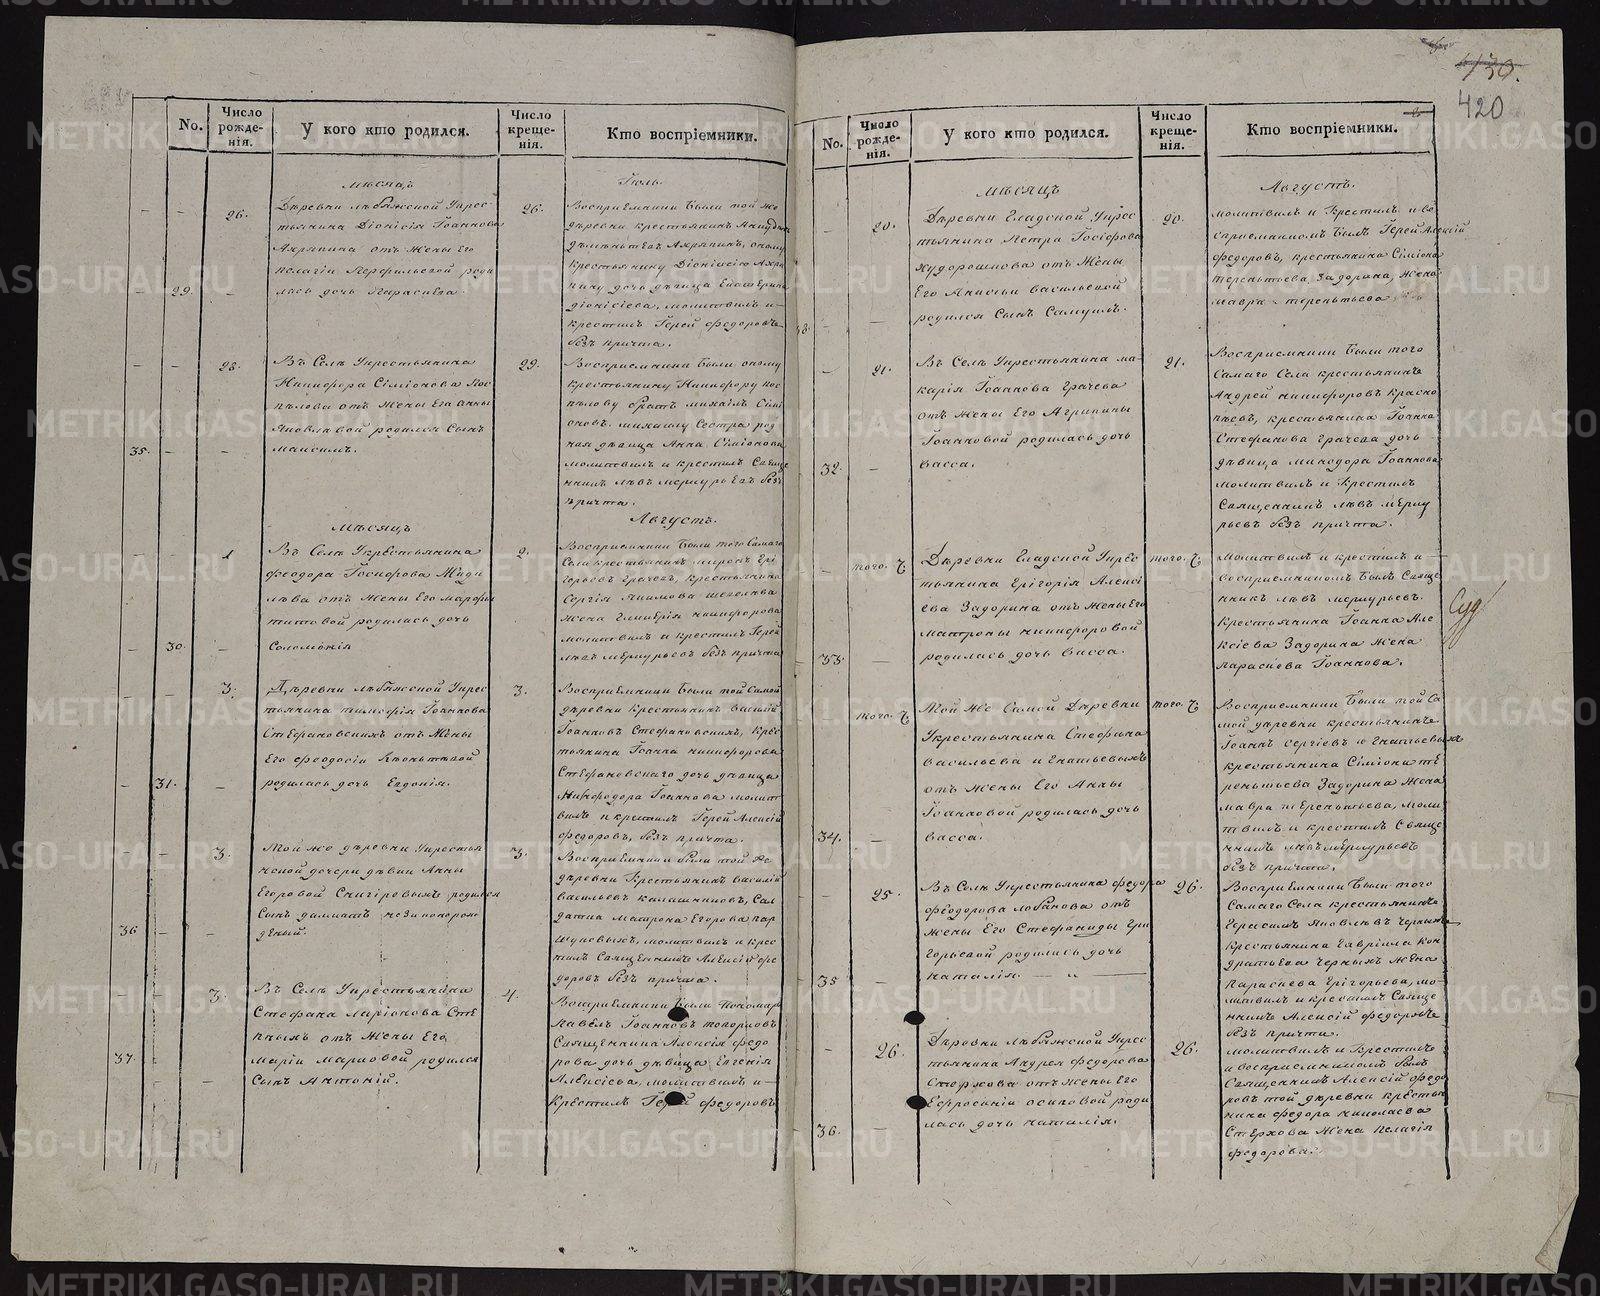 130.
420
No.
Число рожде-нія.
У кого кто родился.
Число креще-нія.
Кто воспріемники.
Мѣсяцъ
Іюль.
29.
26.
Деревни Лебяжской у крес
тьянина Діонисія Іоаннова
отъ жены Его
Пелагіи Перфильевой роди
лась дочь Параскева
26.
Воспріемники были той же
деревни крестьянинъ
крестьянину Діонисію
дочь дѣвица Екатерина
Діонисіева, молитвилъ и
крестилъ Іерей Федоровъ
безъ причта.
35.
28.
Въ Селѣ у крестьянина
Никифора Сіміонова Пос
пѣлова отъ жены Его Анны
Яковлевой родился Сынъ
Максимъ.
29.
Воспріемники были оному
крестьянину Никифору Пос
пѣлову братъ Михаилъ Сімі
оновъ. Михаилу Сестра род
ная дѣвица Анна Сіміонова
молитвилъ и крестилъ Свяще
нникъ Левъ Меркурьевъ безъ
причта.
Мѣсяцъ
Августъ.
30.
1
Въ Селѣ у крестьянина
Феодора Іосифова Жиди
лева отъ жены Его Марфы
Титовой родилась дочь
Соломонія
2.
Воспріемники были того Самаго
Села крестьянинъ Миронъ Гри
горьевъ Грачевъ, крестьянина
Сергія Якимова
жена Гликерія Никифорова
молитвилъ и крестилъ Іерей
Левъ Меркурьевъ безъ причта
31.
3.
Деревни Лебяжской у крес
тьянина Тимофія Іоаннова
Стефановскихъ отъ жены
Его Феодосіи Леонтьевой
родилась дочь Евдокія.
3.
Воспріемники были той Самой
деревни крестьянинъ Василій
Іоанновъ Стефановскихъ, крес
тьянина Іоанна Никифорова
Стефановскаго дочь дѣвица
Минодора Іоаннова молит
вилъ и крестилъ Іерей Алексій
Федоровъ, безъ причта.
36
3.
Той же деревни у крестьян
ской дочери дѣвки Анны
Егоровой Снигиревыхъ родился
Сынъ Далматъ незаконорож
денный.
3.
Воспріемники были той же
деревни Крестьянинъ Василій
Васильевъ Калашниковъ, Сол
датка Матрона Егорова Пар
шуковыхъ, молитвилъ и крес
тилъ Священникъ Алексій Фе
доровъ безъ причта.
37.
3.
Въ Селѣ у крестьянина
Стефана Ларіонова
отъ жены Его
Маріи Марковой родился
Сынъ Антоній.
4.
Воспріемники были пономарь
Павелъ Іоанновъ Топорковъ
Священника Алексія Федо
рова дочь дѣвица Евгенія
Алексіева, молитвилъ и
Крестилъ Іерей Федоровъ
No.
Число рожде-нія.
У кого кто родился.
Число креще-нія.
Кто воспріемники.
Мѣсяцъ
Августъ.
38.
20.
Деревни Гладской у крес
тьянина Петра Іосифова
Худорошкова отъ жены
Его Анисьи Васильевой
родился Сынъ Самуилъ.
20.
молитвилъ и Крестилъ и во
спріемникомъ былъ Іерей Алексій
Федоровъ, крестьянина Сіміона
Терентьева Задорина, жена
Мавра Терентьева
32.
21.
Въ Селѣ у крестьянина Ма
карія Іоаннова Грачева
отъ жены Его Агрипины
Іоанновой родилась дочь
Васса.
21.
Воспріемники были того
Самаго Села крестьянинъ
Андрей Никифоровъ Краско
пѣевъ, крестьянина Іоанна
Стефанова Грачева дочь
дѣвица Минодора Іоаннова
молитвилъ и Крестилъ
Священникъ Левъ Мерку
рьевъ безъ причта.
33.
того. Ч.
Деревни Гладской у крес
тьянина Григорія Алексі
ева Задорина отъ жены Его
Матроны Никифоровой
родилась дочь Васса.
того. Ч.
Молитвилъ и крестилъ и
воспріемникомъ былъ Свяще
нникъ Левъ Меркурьевъ.
Крестьянина Іоанна Але
ксіева Задорина Жена
Параскева Іоаннова.
Суд
34.
того. Ч.
Той же Самой Деревни
У крестьянина Стефана
Васильева Игнатьевыхъ
отъ жены Его Анны
Іоанновой родилась дочь
Васса.
того. Ч.
Воспріемники были той Са
мой деревни крестьянинъ
Іоаннъ Сергіевъ Игнатьевыхъ
крестьянина Сіміона Те
рентьева Задорина жена
Мавра Терентьева, моли
твилъ и крестилъ Свяще
нникъ Левъ Меркурьевъ
безъ причта.
35
25.
Въ Селѣ у крестьянина Федора
Федорова Лобанова отъ
жены Его Стефаниды Гри
горьевой родилась дочь
Наталія.
26.
Воспріемники были того
Самаго Села крестьянинъ
Герасимъ Яковлевъ Черныхъ
крестьянина Гавріила Кон
дратьева Черныхъ жена
Параскева Григорьева, мо
литвилъ и крестилъ Свяще
нникъ Алексій Федоровъ
безъ причта.
36.
26.
Деревни Лебяжской у крес
тьянина Андрея Федорова
Стерхова отъ жены Его
Ефросиніи Осиповой роди
лась дочь Наталія.
26.
молитвилъ и Крестилъ
и воспріемникомъ былъ
Священникъ Алексій Федо
ровъ той деревни крестья
нина Федора Николаева
Стерхова Жена Пелагія
Федорова.
METRIKI.GASO-URAL.RU